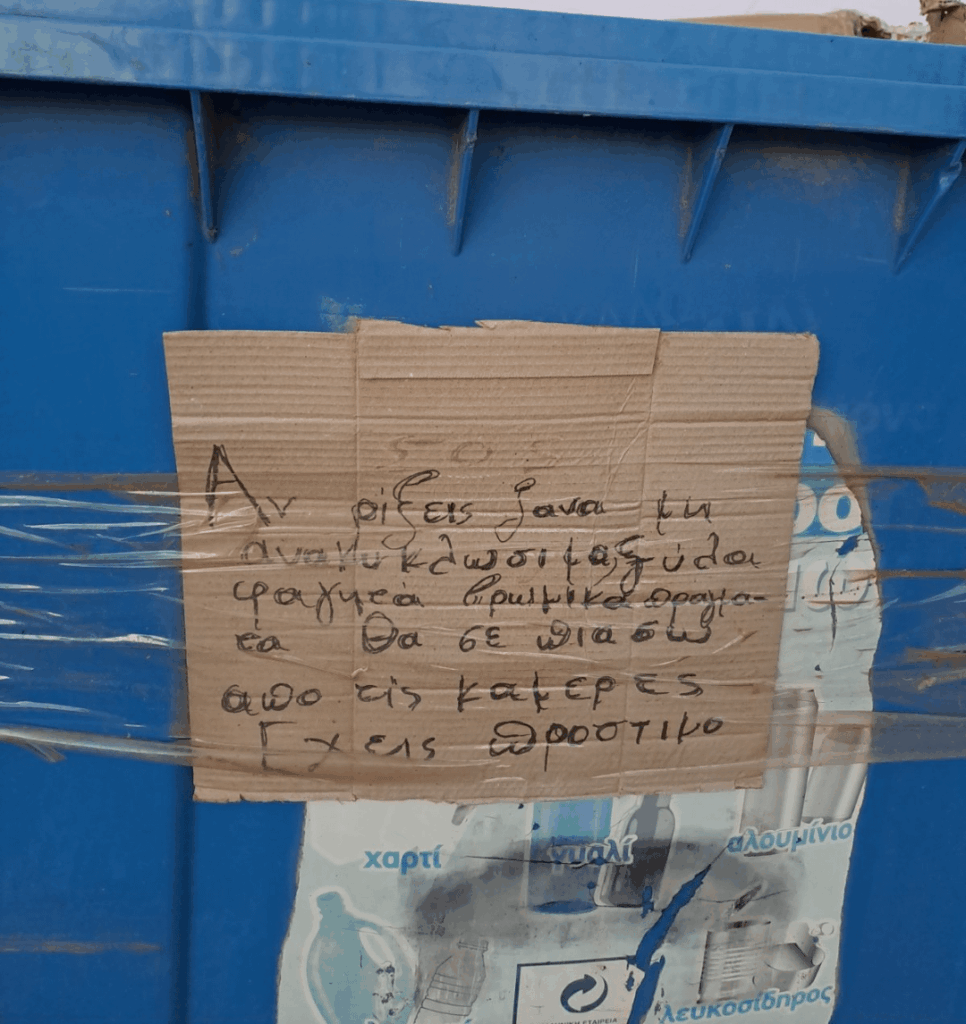 Αν ρίξεις ξανα μη
ανακυκλωσιμα ξύλα
φαγητά βρωμικα πραγμα-
τα θα σε πιασω
απο τις καμερες
Εχεις προστιμο
χαρτί
γυαλί
αλουμίνιο
λευκοσίδηρος